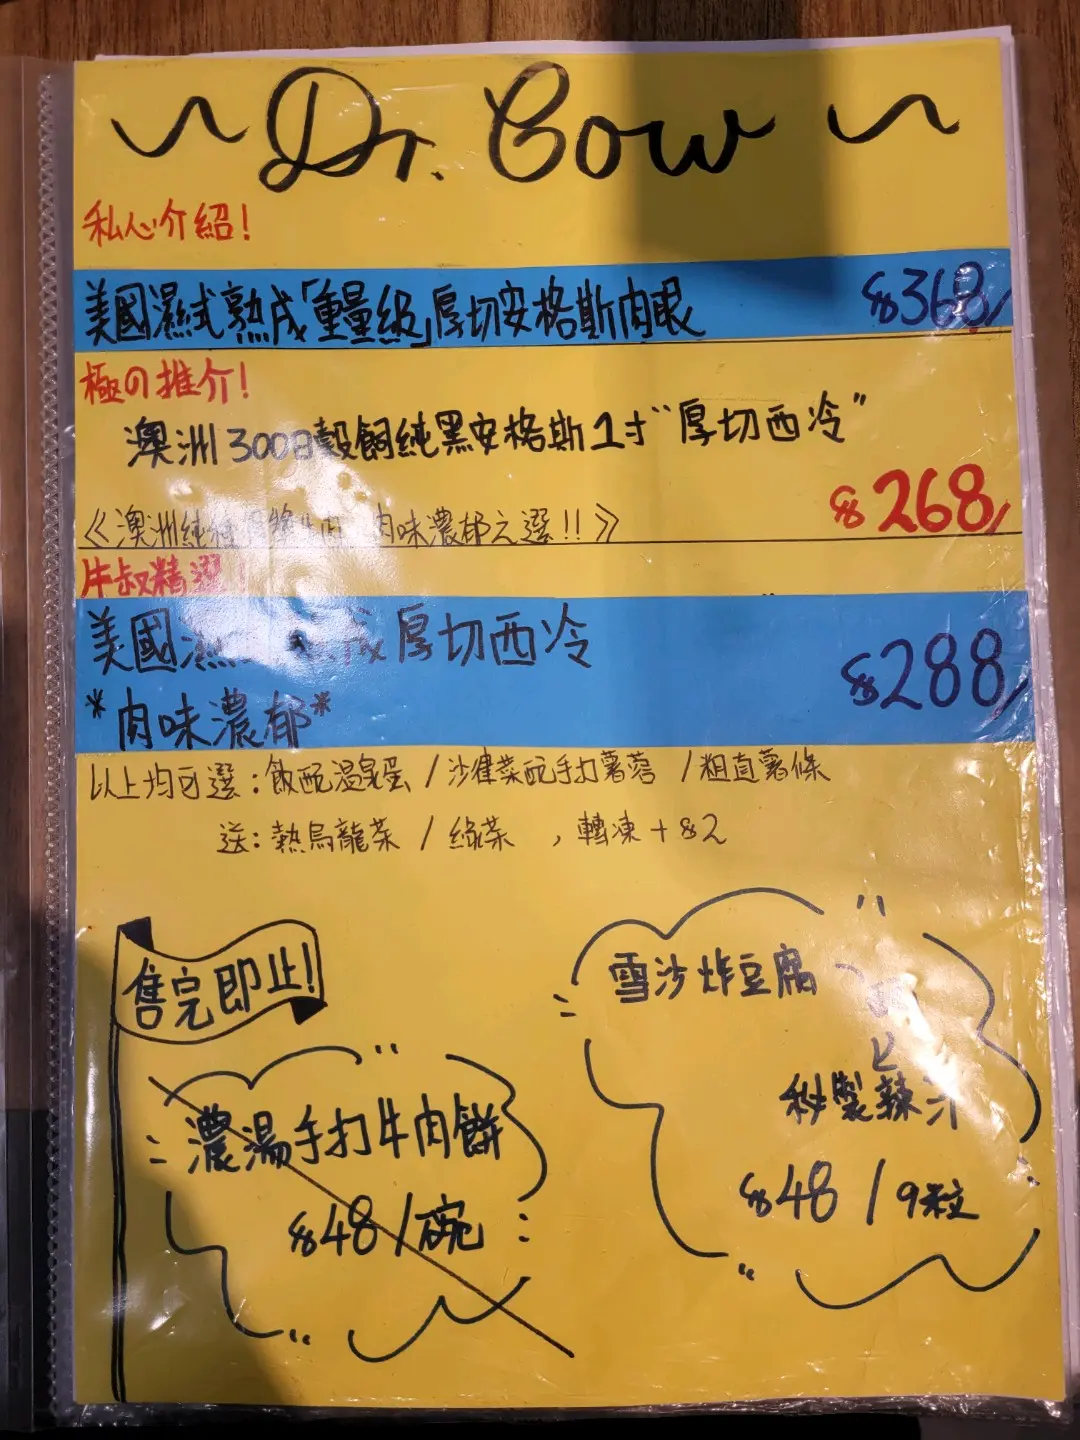 ~ Dr. Cow ~
私心介紹!
美國濕式熟成「重量級」厚切安格斯肉眼 $368/
極の推介!
澳洲300日穀飼純黑安格斯1寸"厚切西冷"
《澳洲純種 肉味濃郁之選!!》 $268/
牛叔精選!
美國濕 成厚切西冷
*肉味濃郁* $288/
以上均可選:飯配溫泉蛋 / 沙律菜配手打薯蓉 / 粗直薯條
送:熱烏龍茶 / 綠茶 , 轉凍+$2
售完即止!
濃湯手打牛肉餅
$48/碗
雪沙炸豆腐
秘製辣汁
$48 / 9粒